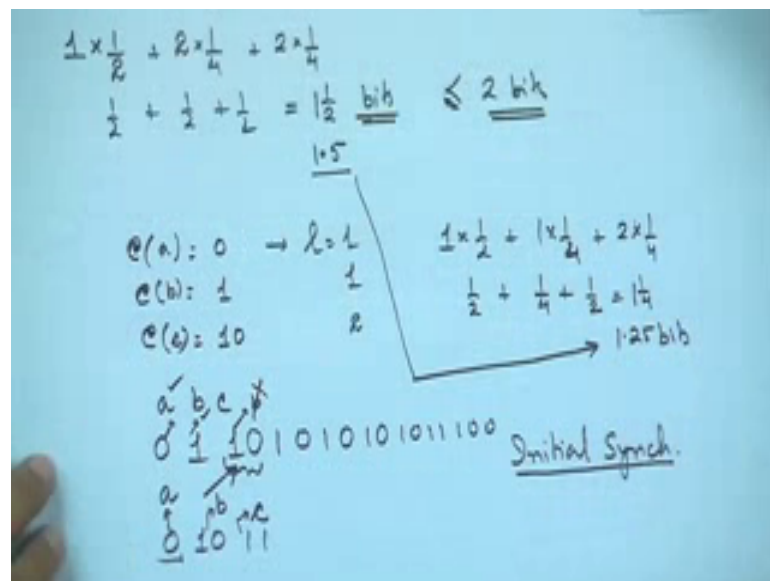 1 × 1/2 + 2 × 1/4 + 2 × 1/4
1/2 + 1/2 + 1/2 = 1 1/2 bits ≤ 2 bits
1.5
C(a) = 0 → l = 1
C(b) = 1 1
C(c) = 10 2
1 × 1/2 + 1 × 1/4 + 2 × 1/4
1/2 + 1/4 + 1/2 = 1 1/4
1.25 bits
a b c
0 1 10 1 0 1 0 1 0 1 0 1 1 1 0 0
Initial Synch.
a b c
0 10 11